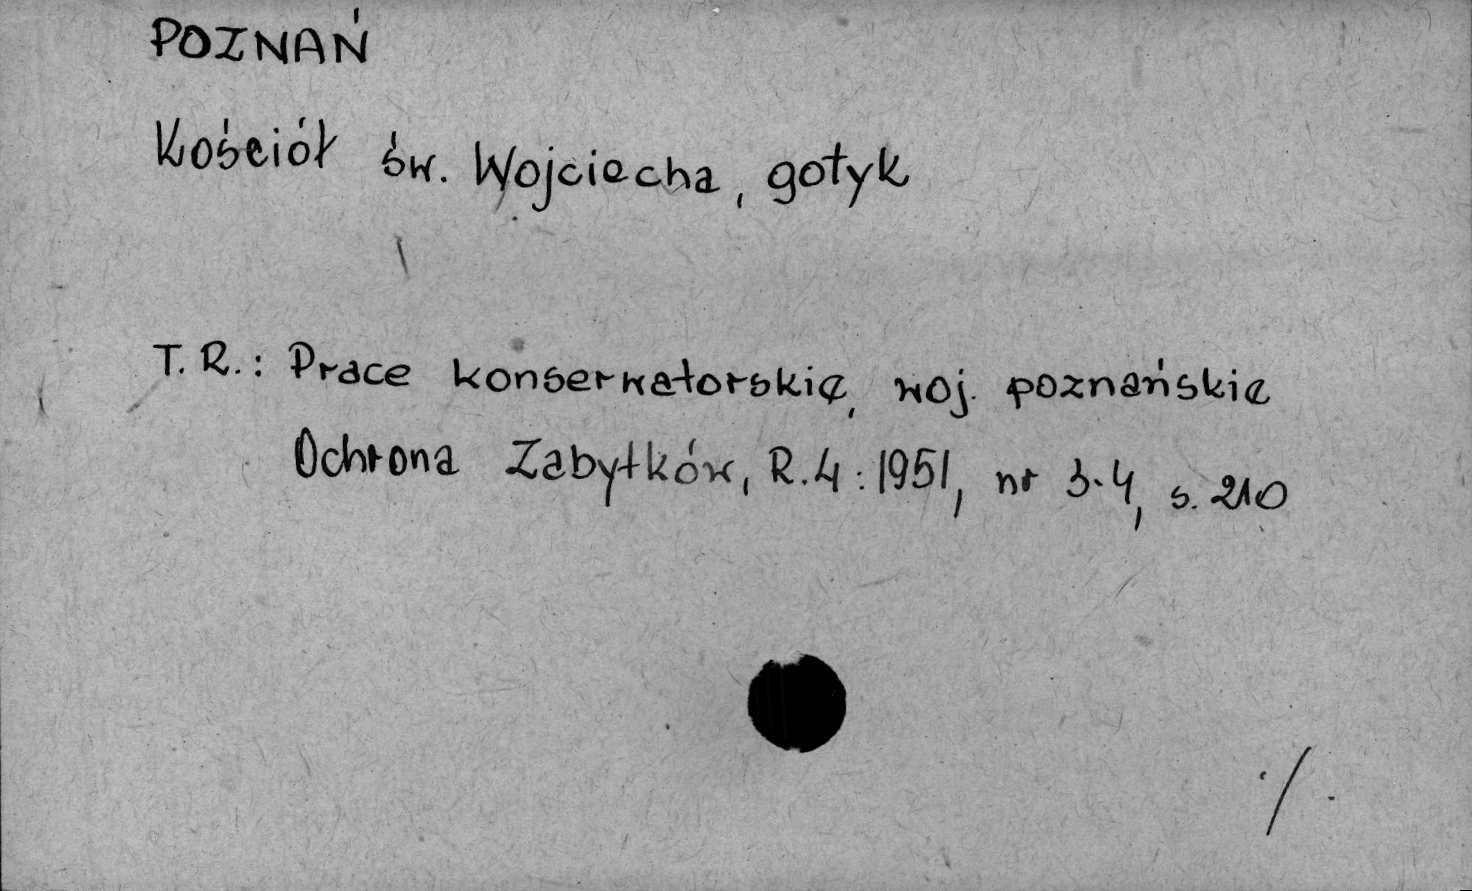 POZNAŃ
Kościół św. Wojciecha, gotyk
T. R.: Prace konserwatorskie, woj. poznańskie
Ochrona Zabytków, R.4:1951, nr 3-4, s. 210
./.